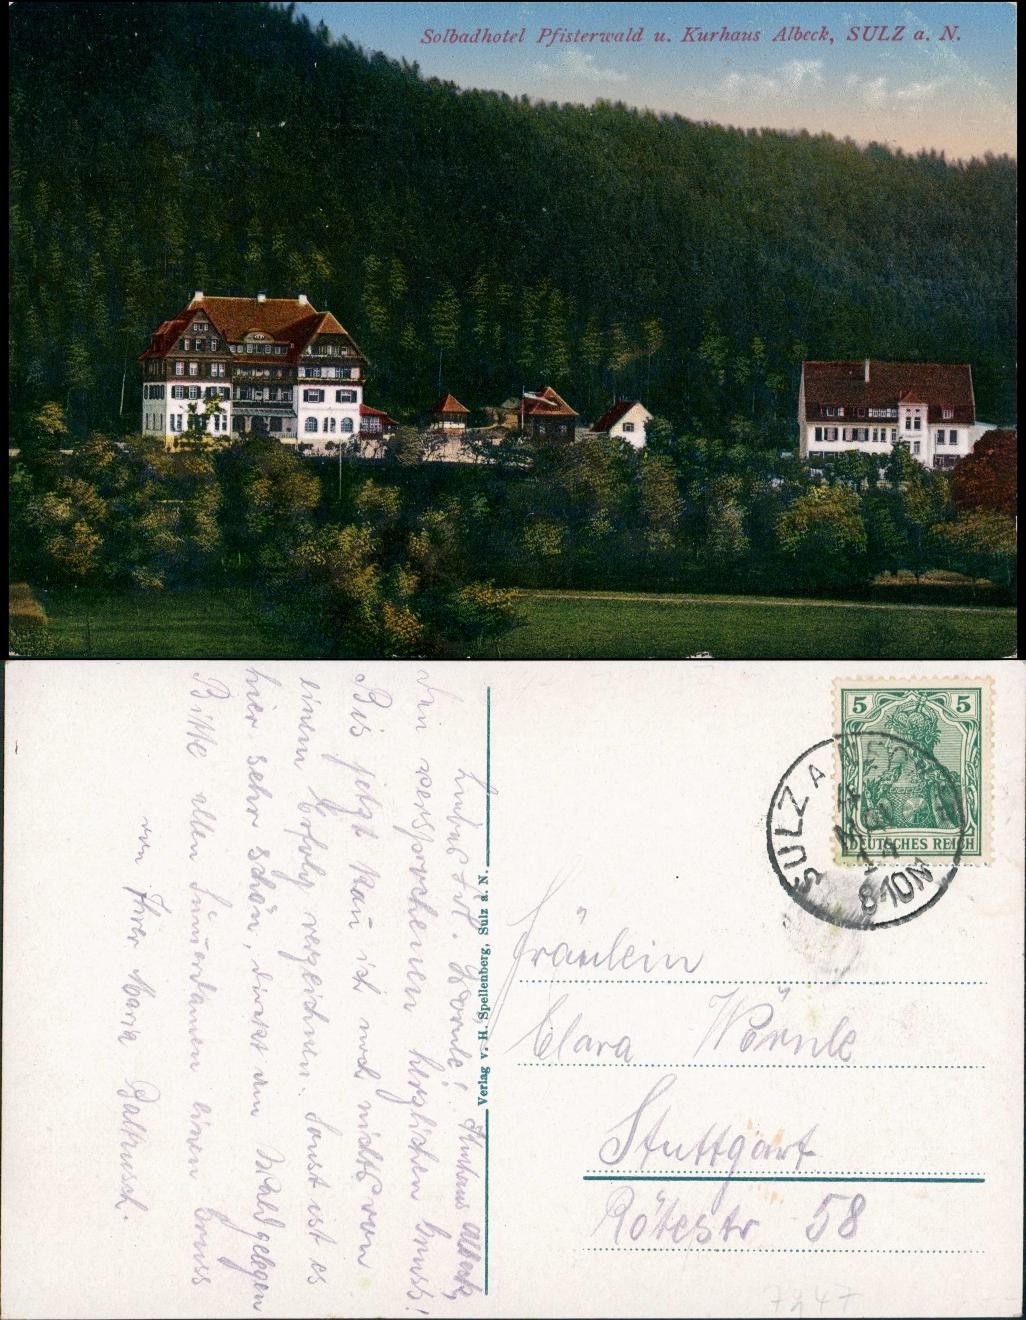 Solbadhotel Pfisterwald u. Kurhaus Albeck, SULZ a. N.
5 5
DEUTSCHES REICH
SULZ A. NECKAR
8-10N
Kurhaus Albeck,
Liebes Frl. Wörnle!
Den versprochenen herzlichen Gruss!
Bis jetzt kan ich noch nichts von
einem Erfolg verzeichnen. Sonst ist es
hier sehr schön, direkt am Wald gelegen
Bitte allen einen Gruss
von Ihrer Maria
Verlag v. H. Spellenberg, Sulz a. N.
Fräulein
Clara Wörnle
Stuttgart
Rötestr 58
7247